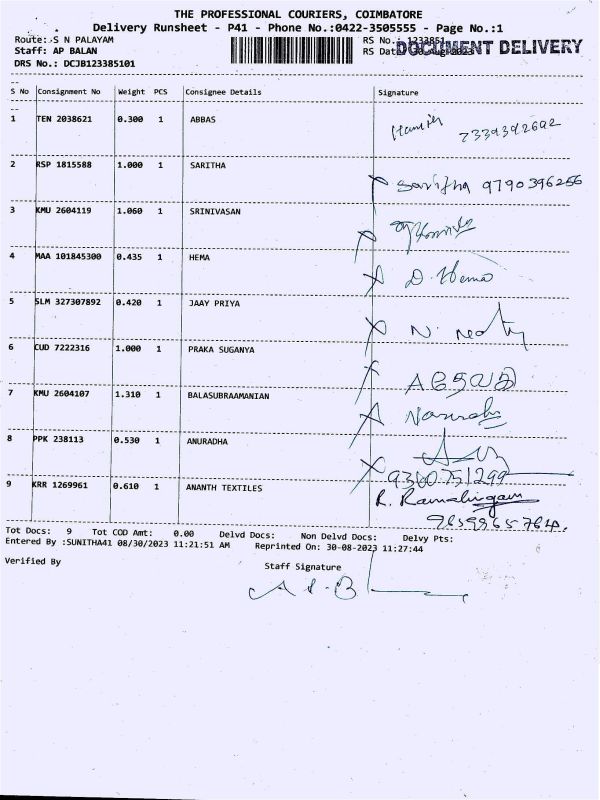 THE PROFESSIONAL COURIERS, COIMBATORE
Delivery Runsheet - P41 - Phone No.:0422-3505555 - Page No.:1
Route: S N PALAYAM RS No.: 1233851
Staff: AP BALAN RS Date: 30-Aug-2023 DOCUMENT DELIVERY
DRS No.: DCJB123385101
S No Consignment No Weight PCS Consignee Details Signature
1 TEN 2038621 0.300 1 ABBAS 7339392692
2 RSP 1815588 1.000 1 SARITHA
Saritha 9790396256
3 KMU 2604119 1.060 1 SRINIVASAN
4 MAA 101845300 0.435 1 HEMA
D. Hema
5 SLM 327307892 0.420 1 JAAY PRIYA
6 CUD 7222316 1.000 1 PRAKA SUGANYA
7 KMU 2604107 1.310 1 BALASUBRAAMANIAN
8 PPK 238113 0.530 1 ANURADHA
9360751299
9 KRR 1269961 0.610 1 ANANTH TEXTILES
R. Ramalingam
Tot Docs: 9 Tot COD Amt: 0.00 Delvd Docs: Non Delvd Docs: Delvy Pts:
Entered By :SUNITHA41 08/30/2023 11:21:51 AM Reprinted On: 30-08-2023 11:27:44
Verified By Staff Signature